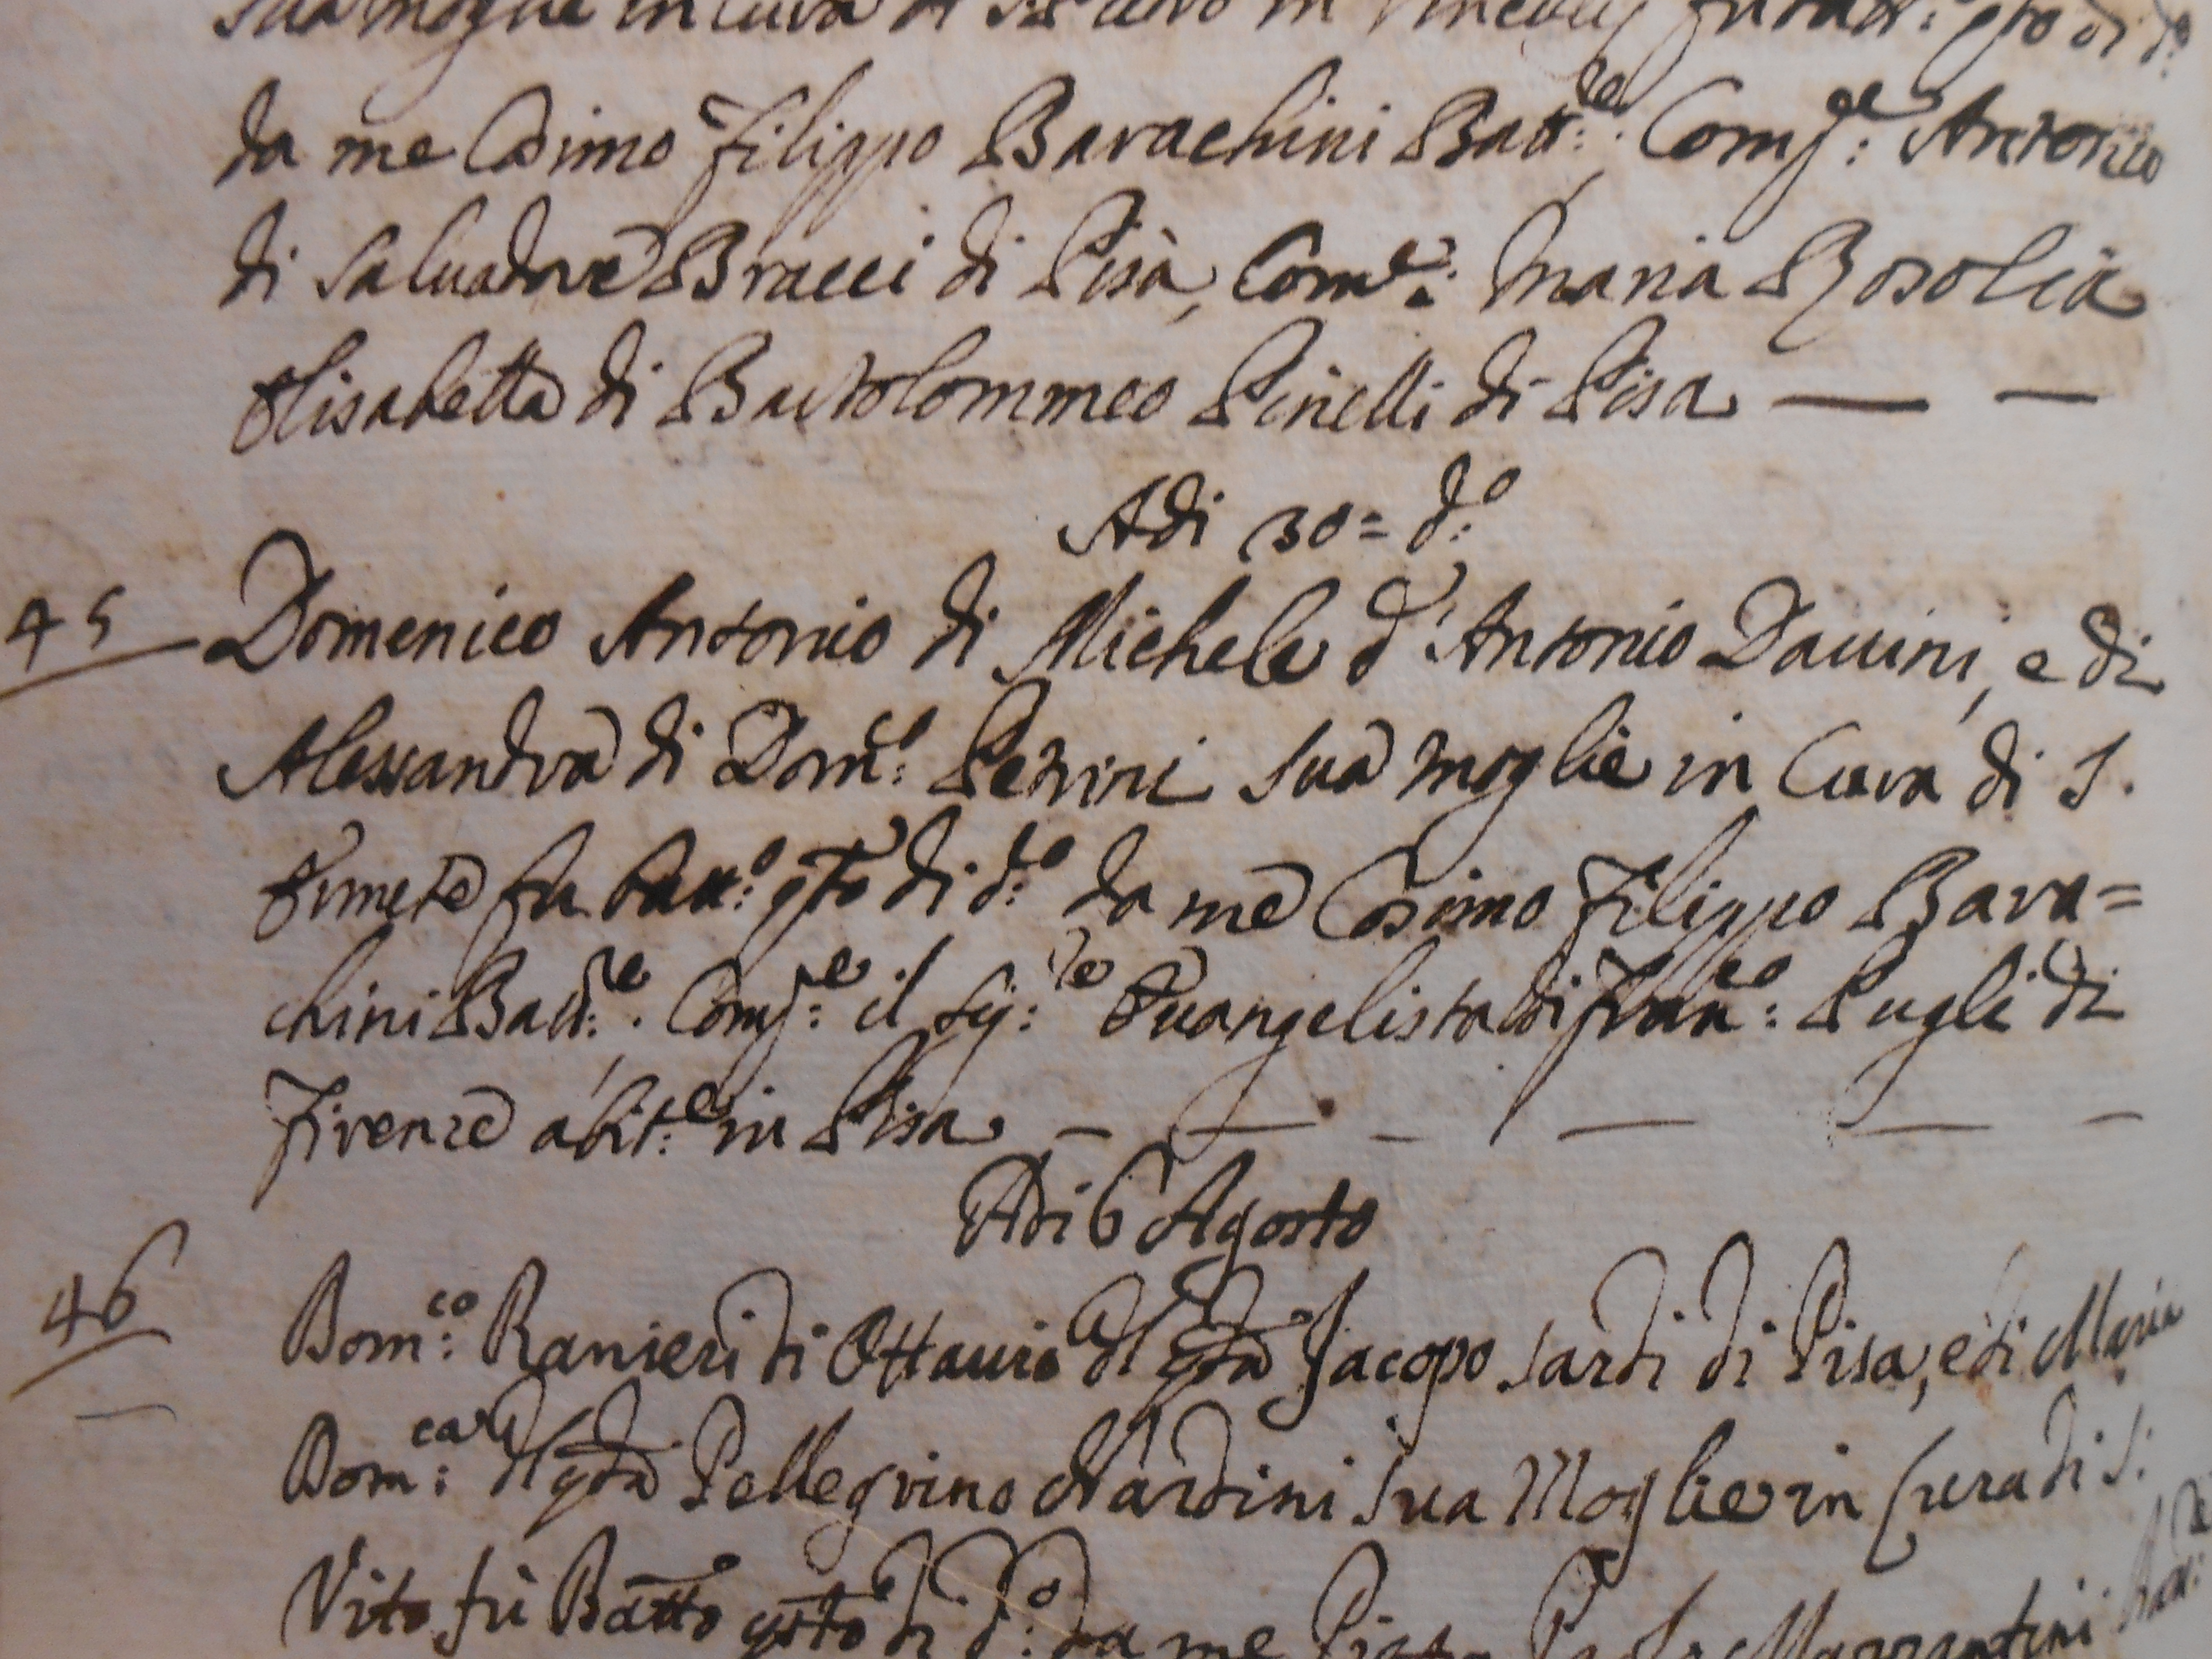 sua moglie in Cura di S. Piero in Vincoli fu batt:º qsto di dº
da me Cosimo Filippo Barachini Batt:re. Comp:e Antonio
di Salvadore Bracci di Pisa, Com:e Maria Rosolia
Elisabetta di Bartolommeo Pinelli di Pisa — —
Adi 30= d:º
45 Domenico Antonio di Michele d'Antonio Dauini, e di
Alessandra di Dom:co Petrini sua moglie in Cura di S.
Ermete fu batt:º qsto di d:º da me Cosimo Filippo Bara=
chini Batt:re. Comp:e il Sig:re Euangelista di Fran:co Pugli di
Firenze abit:e in Pisa — — — — — —
Adi 6 Agosto
46 Dom:co Ranieri di Ottauio dl qdm Jacopo Sardi di Pisa, e di Maria
Dom:ca dl qdm Pellegrino Nardini sua Moglie in Cura di S:
Vito fù Batto qsto dì d:º da me Paolo